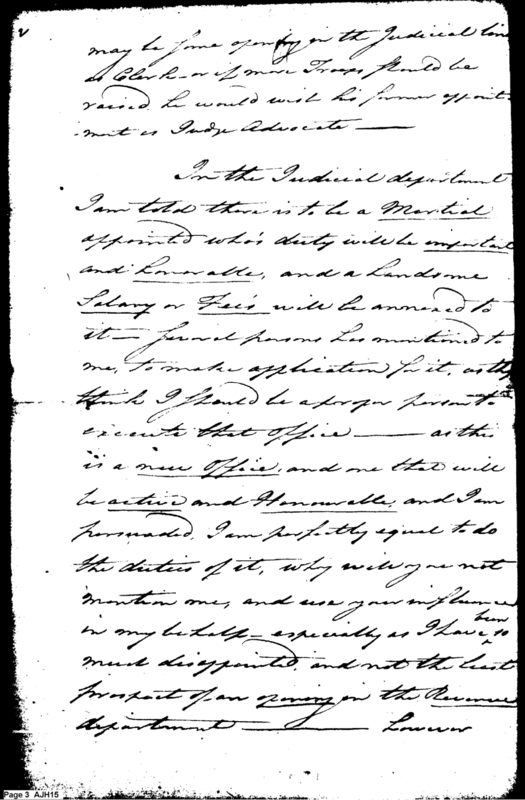 2
may be some opening in the Judicial line
as Clerk - or if more Troops should be
raised he would wish his former appoint-
-ment as Judge Advocate —
In the Judicial department
I am told there is to be a Martial
appointed who's duty will be important
and honorable, and a handsome
Salary or Fee's will be annexed to
it — several persons has mentioned to
me, to make application for it, as they
think I should be a proper person to
execute that office — as this
is a new office, and one that will
be active and Honourable, and I am
persuaded, I am perfectly equal to do
the duties of it, why will you not
mention me, and use your influence
in my behalf - especially as I have been so
much disappointed, and not the least
prospect of an opening in the Revenue
department — however
Page 3 AJH15